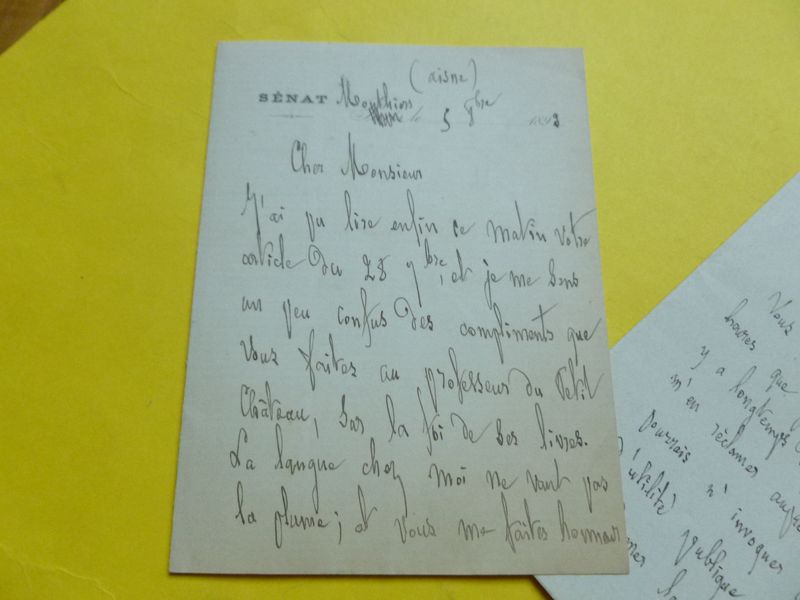 (aisne)
SÉNAT Monthiers
le 5 8bre 1893
Cher Monsieur
J'ai pu lire enfin ce matin votre
article du 28 7bre, et je me sens
un peu confus des compliments que
vous faites au professeur du Petit
Château, sur la foi de ses livres.
La langue chez moi ne vaut pas
la plume ; et vous me faites honneur
Vous
heures que
y a longtemps
m'en réclamer
pourrais n' invoquer
l'utilité publique